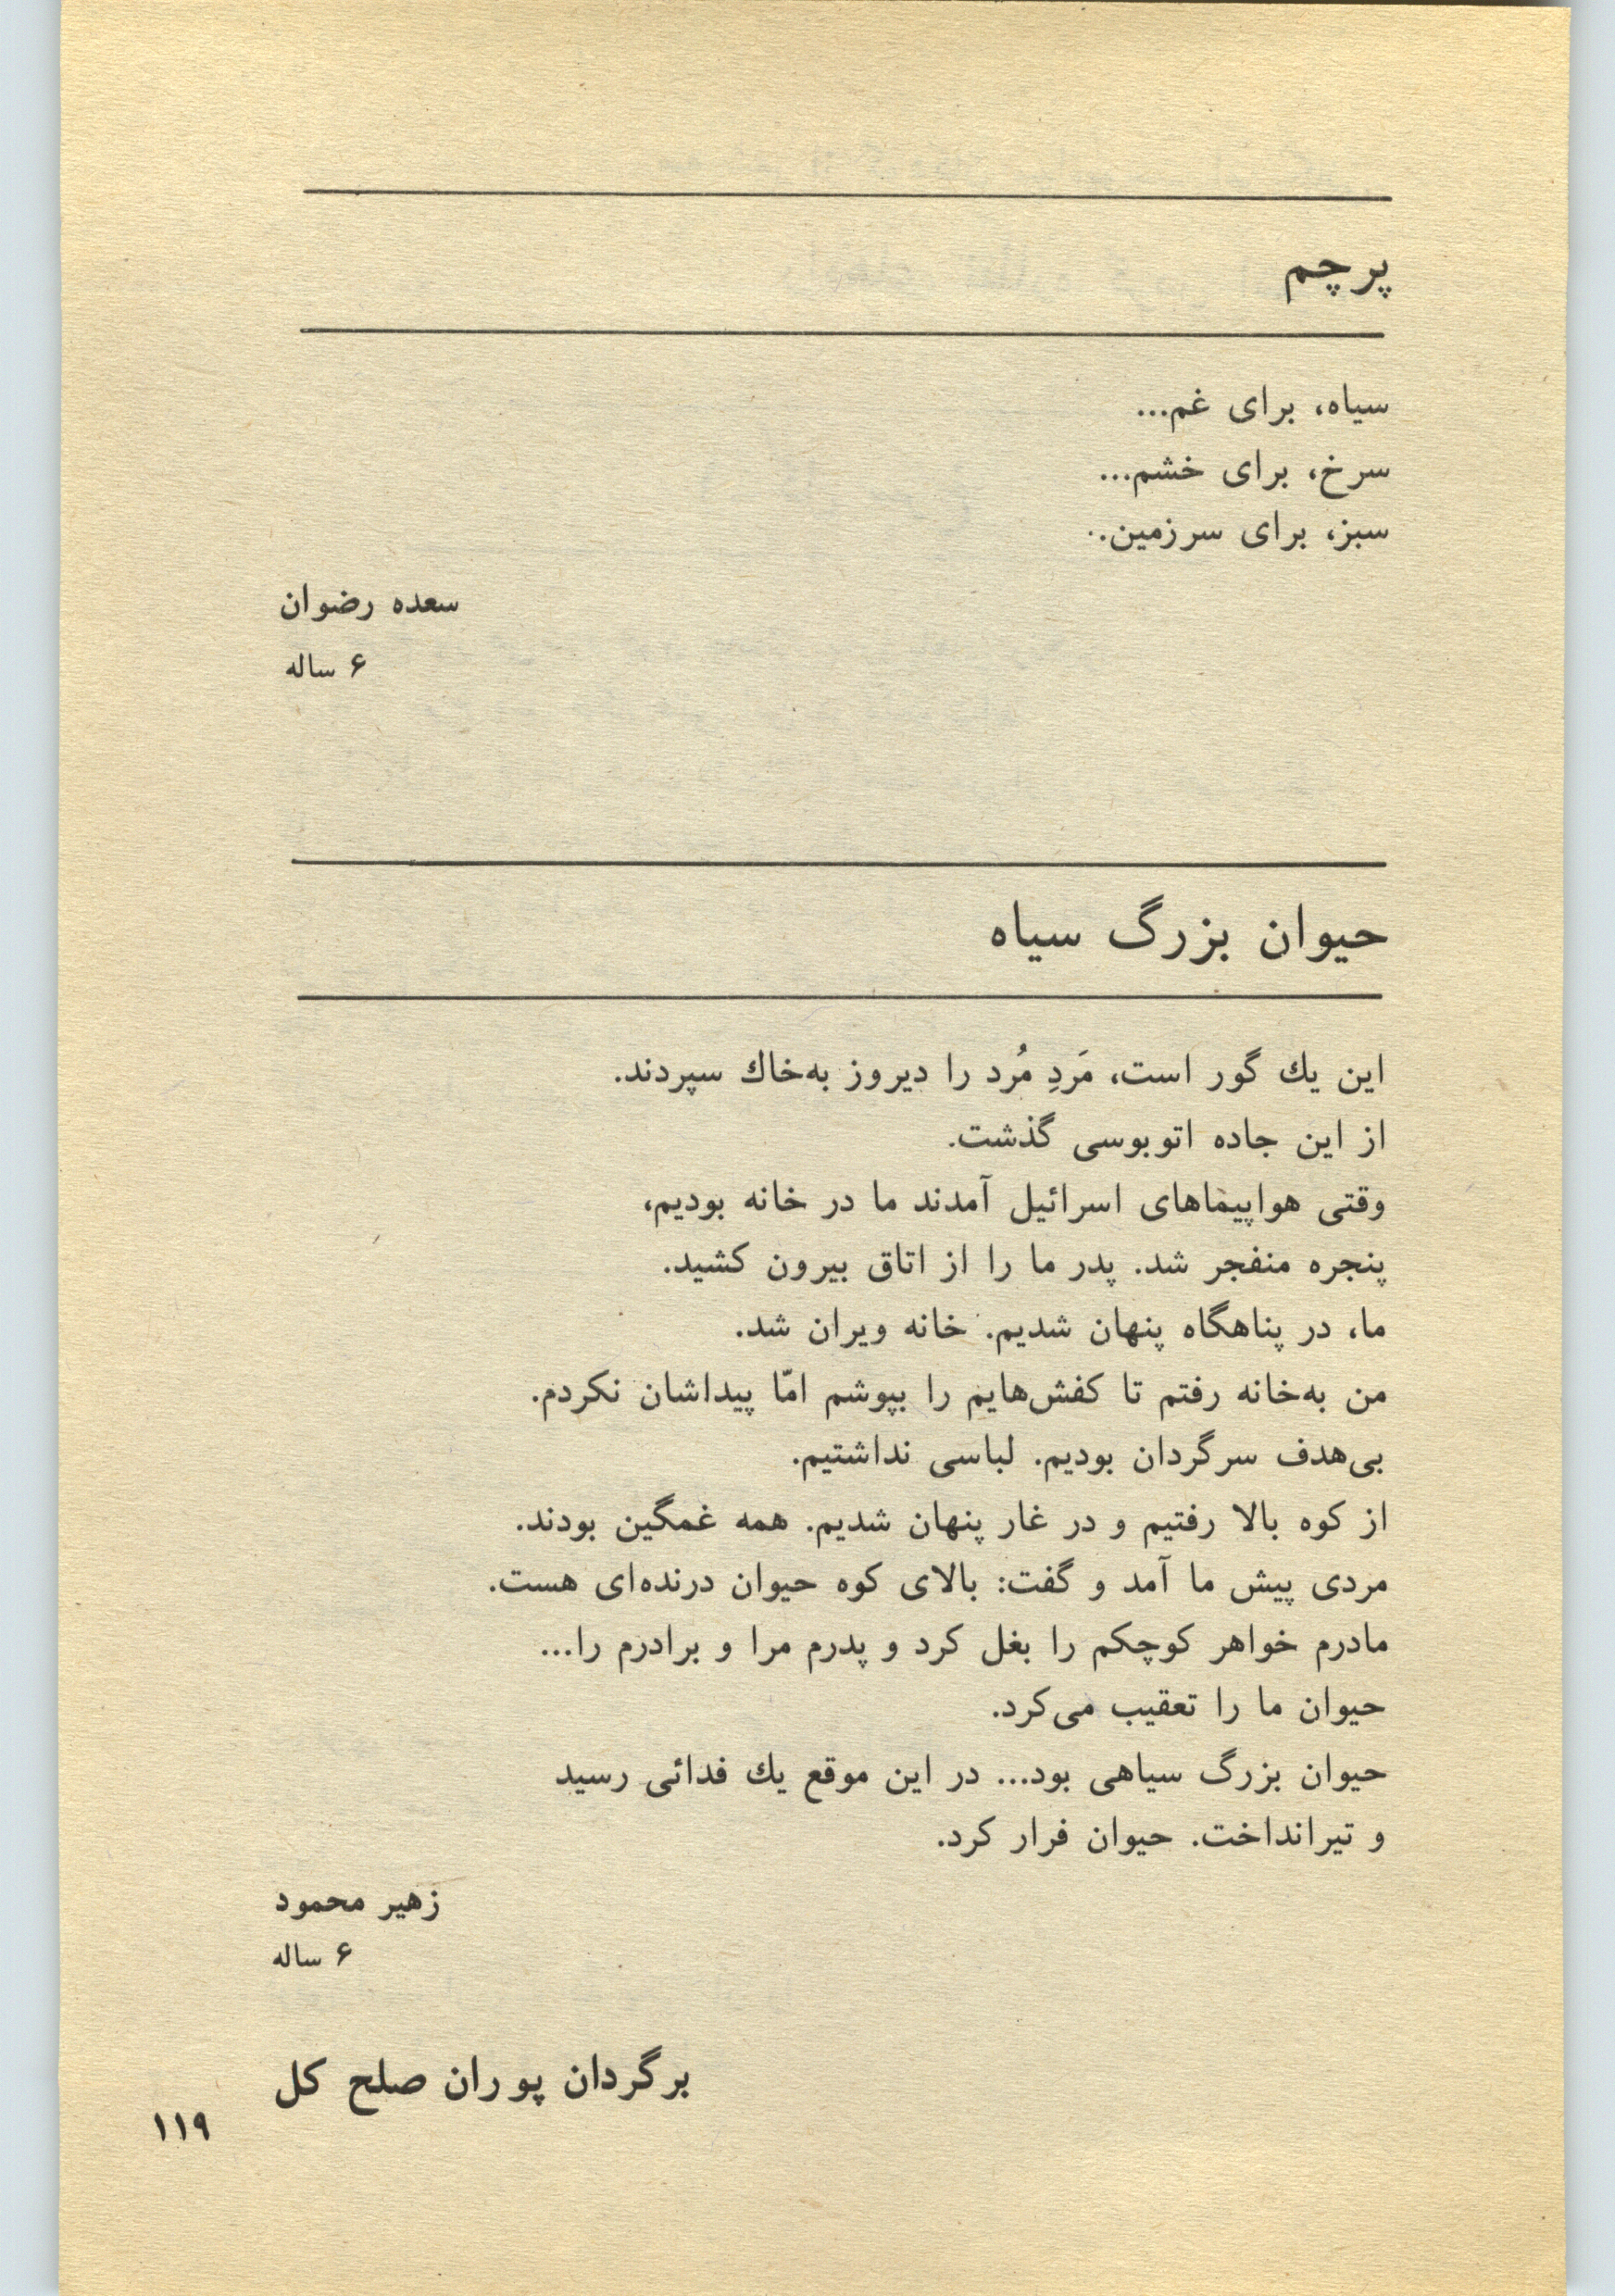 پرچم
سیاه، برای غم...
سرخ، برای خشم...
سبز، برای سرزمین..
سعده رضوان
۶ ساله
حیوان بزرگ سیاه
این یك گور است، مَردِ مُرد را دیروز به‌خاك سپردند.
از این جاده اتوبوسی گذشت.
وقتی هواپیماهای اسرائیل آمدند ما در خانه بودیم،
پنجره منفجر شد. پدر ما را از اتاق بیرون کشید.
ما، در پناهگاه پنهان شدیم. خانه ویران شد.
من به‌خانه رفتم تا کفش‌هایم را بپوشم امّا پیداشان نکردم.
بی‌هدف سرگردان بودیم. لباسی نداشتیم.
از کوه بالا رفتیم و در غار پنهان شدیم. همه غمگین بودند.
مردی پیش ما آمد و گفت: بالای کوه حیوان درنده‌ای هست.
مادرم خواهر کوچکم را بغل کرد و پدرم مرا و برادرم را...
حیوان ما را تعقیب می‌کرد.
حیوان بزرگ سیاهی بود... در این موقع یك فدائی رسید
و تیرانداخت. حیوان فرار کرد.
زهیر محمود
۶ ساله
برگردان پوران صلح کل
۱۱۹